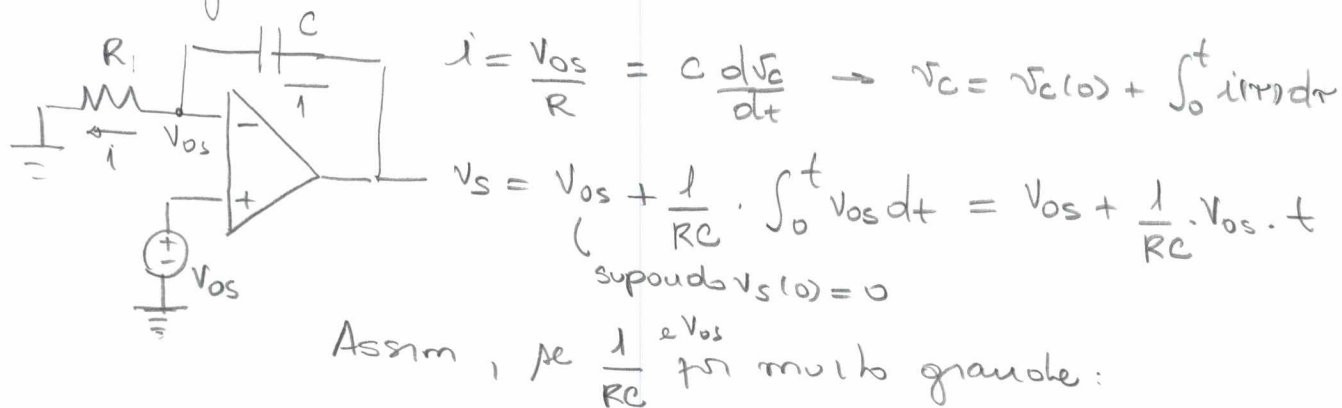 C
R₁
1
i
V_OS
i = V_OS/R = C dv_c/dt → v_c = v_c(0) + ∫₀ᵗ i(τ)dτ
V_S = V_OS + 1/RC · ∫₀ᵗ V_OS dt = V_OS + 1/RC · V_OS · t
supondo V_S(0) = 0
V_OS
Assim, se 1/RC e V_OS for muito grande: